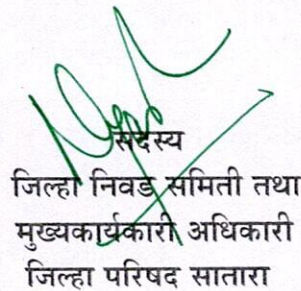 सदस्य
जिल्हा निवड समिती तथा
मुख्यकार्यकारी अधिकारी
जिल्हा परिषद सातारा